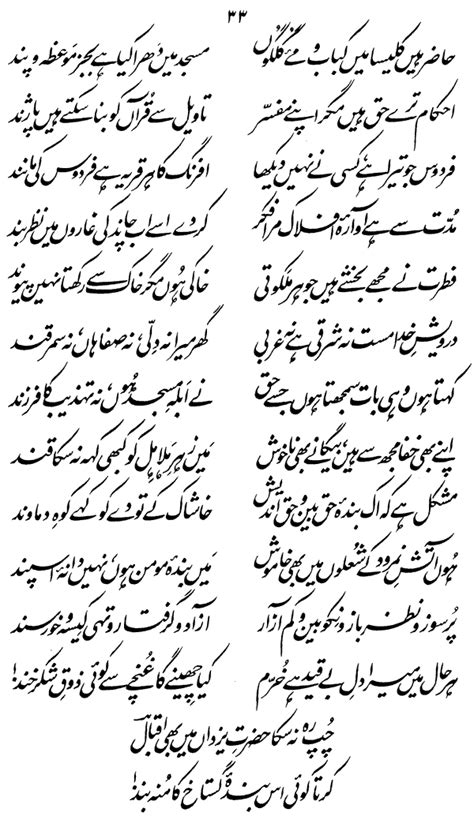 ۳۳
حاضر ہیں کلیسا میں کباب و مے گلگوں مسجد میں دھرا کیا ہے بجز موعظہ و پند
احکام ترے حق ہیں مگر اپنے مفسر تاویل سے قرآں کو بنا سکتے ہیں پاژند
فردوس جو تیرا ہے کسی نے نہیں دیکھا افرنگ کا ہر قریہ ہے فردوس کی مانند
مدت سے ہے آوارۂ افلاک مرا فکر کر دے اسے اب چاند کی غاروں میں نظر بند
فطرت نے مجھے بخشے ہیں جوہر ملکوتی خاکی ہوں مگر خاک سے رکھتا نہیں پیوند
درویش خدا مست نہ شرقی ہے نہ غربی گھر میرا نہ دلی، نہ صفاہاں، نہ سمرقند
کہتا ہوں وہی بات سمجھتا ہوں جسے حق نے ابلہ مسجد ہوں، نہ تہذیب کا فرزند
اپنے بھی خفا مجھ سے ہیں، بیگانے بھی ناخوش میں زہر ہلاہل کو کبھی کہہ نہ سکا قند
مشکل ہے کہ اک بندۂ حق بین و حق اندیش خاشاک کے تودے کو کہے کوہ دماوند
ہوں آتش نمرود کے شعلوں میں بھی خاموش میں بندۂ مومن ہوں، نہیں دانۂ اسپند
پرسوز و نظر باز و نکوبین و کم آزار آزاد و گرفتار و تہی کیسہ و خورسند
ہر حال میں میرا دل بے قید ہے خرم کیا چھینے گا غنچے سے کوئی ذوق شکر خند!
چپ رہ نہ سکا حضرت یزداں میں بھی اقبالؔ
کرتا کوئی اس بندۂ گستاخ کا منہ بند!